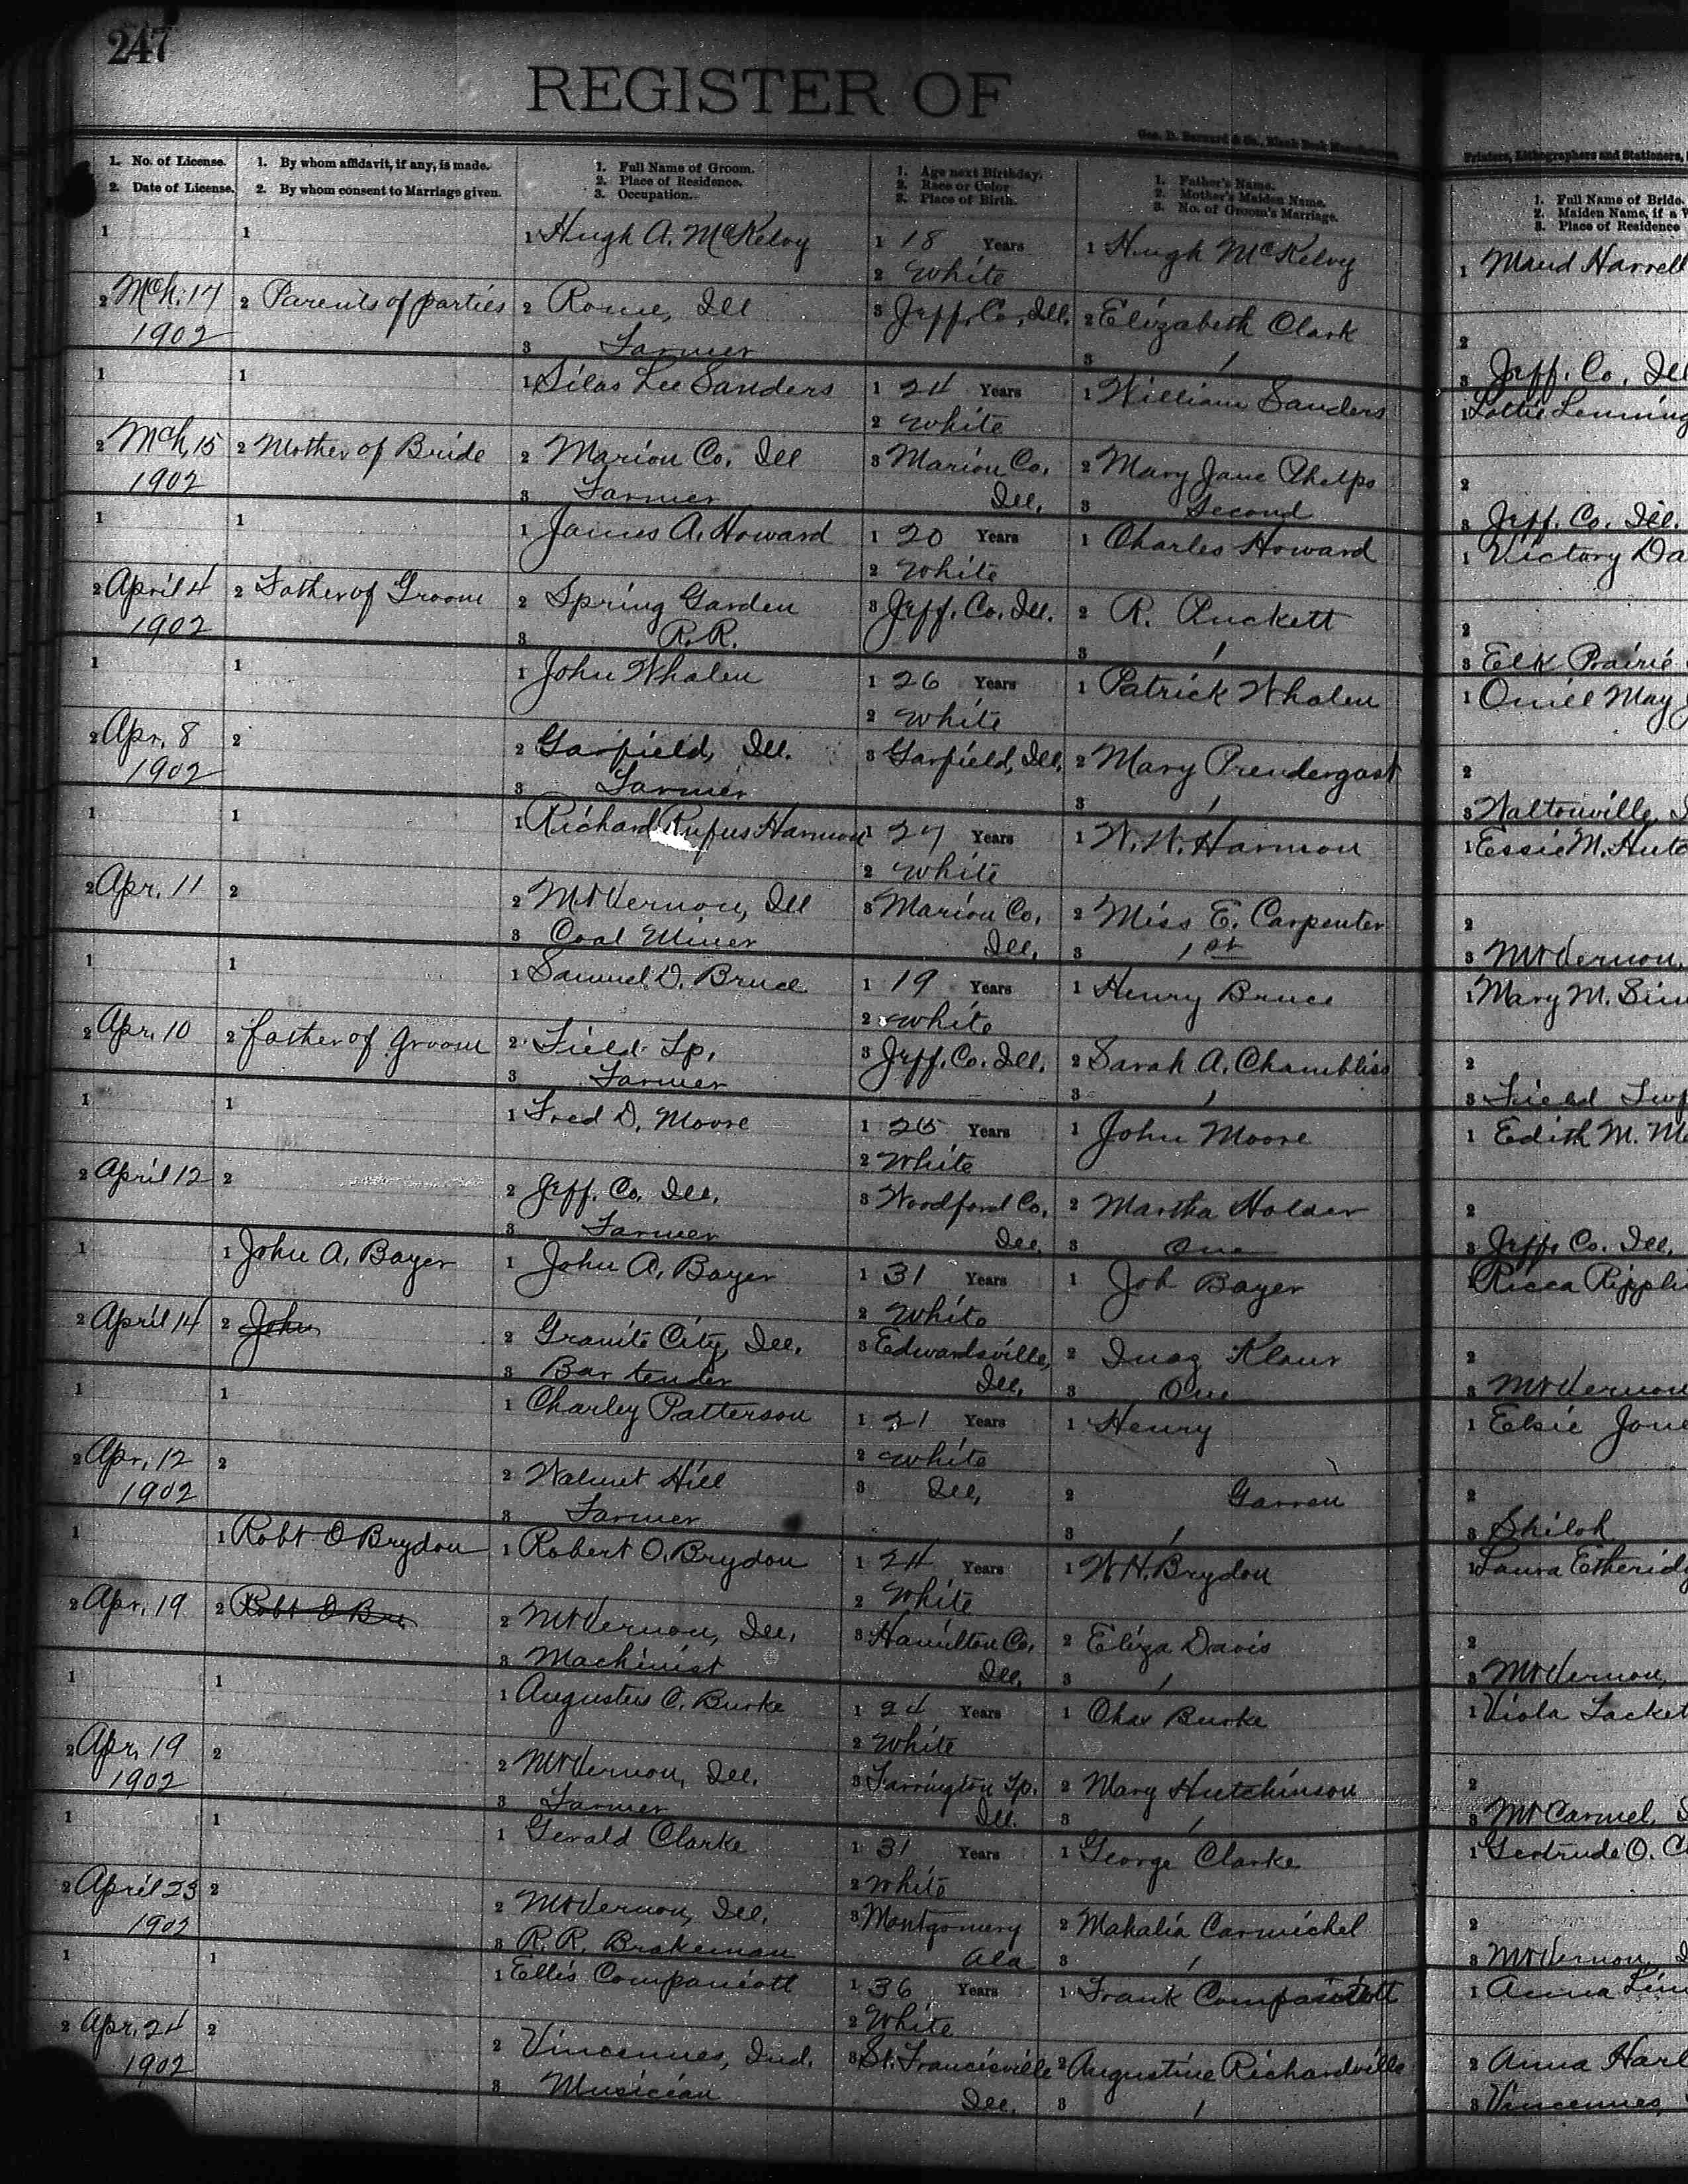 247
REGISTER OF
Geo. D. Barnard & Co., Blank Book Manufacturers
Printers, Lithographers and Stationers,
1. No. of License.
2. Date of License.
1. By whom affidavit, if any, is made.
2. By whom consent to Marriage given.
1. Full Name of Groom.
2. Place of Residence.
3. Occupation.
1. Age next Birthday.
2. Race or Color
3. Place of Birth.
1. Father's Name.
2. Mother's Maiden Name.
3. No. of Groom's Marriage.
1. Full Name of Bride.
2. Maiden Name, if a W
3. Place of Residence
1 1 1 Hugh A. McKelvy 1 18 Years 1 Hugh McKelvy 1 Maud Harrell
2 White
2 Mch. 14 2 Parents of parties 2 Rome, Ill 3 Jeff. Co., Ill. 2 Elizabeth Clark 2
1902 3 Farmer 3 1 3 Jeff. Co. Ill
1 1 1 Silas Lee Sanders 1 24 Years 1 William Sanders 1 Lottie Lenning
2 White
2 Mch. 15 2 Mother of Bride 2 Marion Co. Ill 3 Marion Co. 2 Mary Jane Phelps 2
1902 3 Farmer Ill. 3 Second 3 Jeff. Co. Ill.
1 1 1 James A. Howard 1 20 Years 1 Charles Howard 1 Victory Da
2 White
2 April 4 2 Father of Groom 2 Spring Garden 3 Jeff. Co. Ill. 2 R. Puckett 2
1902 3 R.R. 3 1 3 Elk Prairie
1 1 1 John Whalen 1 26 Years 1 Patrick Whalen 1 Oniel May
2 White
2 Apr. 8 2 2 Garfield, Ill. 3 Garfield, Ill. 2 Mary Prendergast 2
1902 3 Farmer 3 1 3 Waltonville, I
1 1 1 Richard Rufus Harmon 1 27 Years 1 W. W. Harmon 1 Essie M. Hutc
2 White
2 Apr. 11 2 2 Mt Vernon, Ill 3 Marion Co. 2 Miss E. Carpenter 2
3 Coal Miner Ill. 3 1st 3 Mt Vernon,
1 1 1 Samuel D. Bruce 1 19 Years 1 Henry Bruce 1 Mary M. Sim
2 White
2 Apr. 10 2 Father of Groom 2 Field Tp. 3 Jeff. Co. Ill. 2 Sarah A. Chambliss 2
3 Farmer 3 1 3 Field Twp
1 1 1 Fred D. Moore 1 25 Years 1 John Moore 1 Edith M. Mc
2 White
2 April 12 2 2 Jeff. Co. Ill. 3 Woodford Co. 2 Martha Holder 2
3 Farmer Ill. 3 One 3 Jeff. Co. Ill.
1 1 John A. Bayer 1 John A. Bayer 1 31 Years 1 Joh Bayer 1 Ricca Ripplin
2 White
2 April 14 2 John 2 Granite City, Ill. 3 Edwardsville, 2 Klaur 2
3 Bar tender Ill. 3 One 3 Mt Vernon
1 1 1 Charley Patterson 1 21 Years 1 Henry 1 Elsie Jone
2 White
2 Apr. 12 2 2 Walnut Hill 3 Ill. 2 Garren 2
1902 3 Farmer 3 1 3 Shiloh
1 1 Robt O Brydon 1 Robert O. Brydon 1 24 Years 1 W. H. Brydon 1 Laura Etheridg
2 White
2 Apr. 19 2 Robt O Bry 2 Mt Vernon, Ill. 3 Hamilton Co. 2 Eliza Davis 2
3 Machinist Ill. 3 1 3 Mt Vernon,
1 1 1 Augustus C. Burke 1 24 Years 1 Chas Burke 1 Viola Locket
2 White
2 Apr. 19 2 2 Mt Vernon, Ill. 3 Farrington Tp. 2 Mary Hutchinson 2
1902 3 Farmer Ill. 3 1 3 Mt Carmel, I
1 1 1 Gerald Clarke 1 31 Years 1 George Clarke 1 Gertrude O. C
2 White
2 April 23 2 2 Mt Vernon, Ill. 3 Montgomery 2 Mahalia Carmichel 2
1902 3 R. R. Brakeman Ala 3 1 3 Mt Vernon, I
1 1 1 Ellis Companiott 1 36 Years 1 Frank Companiott 1 Anna Lim
2 White
2 Apr. 24 2 2 Vincennes, Ind. 3 St. Francisville 2 Augustine Richardville 2 Anna Harl
1902 3 Musician Ill. 3 1 3 Vincennes,